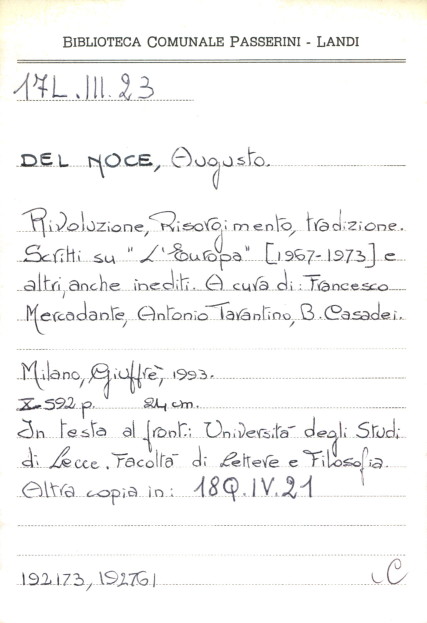 BIBLIOTECA COMUNALE PASSERINI - LANDI
17L.III.23
DEL NOCE, Augusto.
Rivoluzione, Risorgimento, tradizione.
Scritti su "L'Europa" [1967-1973] e
altri, anche inediti. A cura di: Francesco
Mercadante, Antonio Tarantino, B. Casadei.
Milano, Giuffrè, 1993.
X-592 p. 24 cm.
In testa al front.: Università degli Studi
di Lecce. Facoltà di Lettere e Filosofia.
Altra copia in: 18Q.IV.21
192173, 192761
C